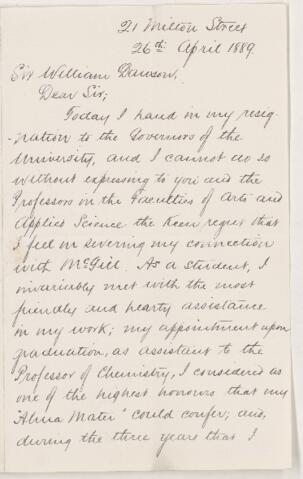 21 Milton Street
26th April 1889.
Sir William Dawson,
Dear Sir;
Today I hand in my resig-
-nation to the Governors of the
University, and I cannot do so
without expressing to you and the
Professors on the Faculties of Arts and
Applied Science the keen regret that
I feel in severing my connection
with McGill. As a student, I
invariably met with the most
friendly and hearty assistance
in my work; my appointment upon
graduation, as assistant to the
Professor of Chemistry, I considered as
one of the highest honours that my
"Alma Mater" could confer; and,
during the three years that I